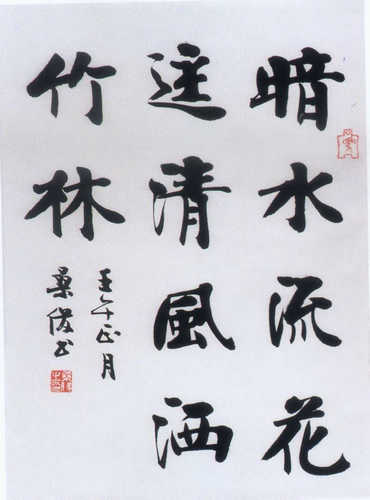 暗水流花
逕清風洒
竹林
壬午正月
桑俊书